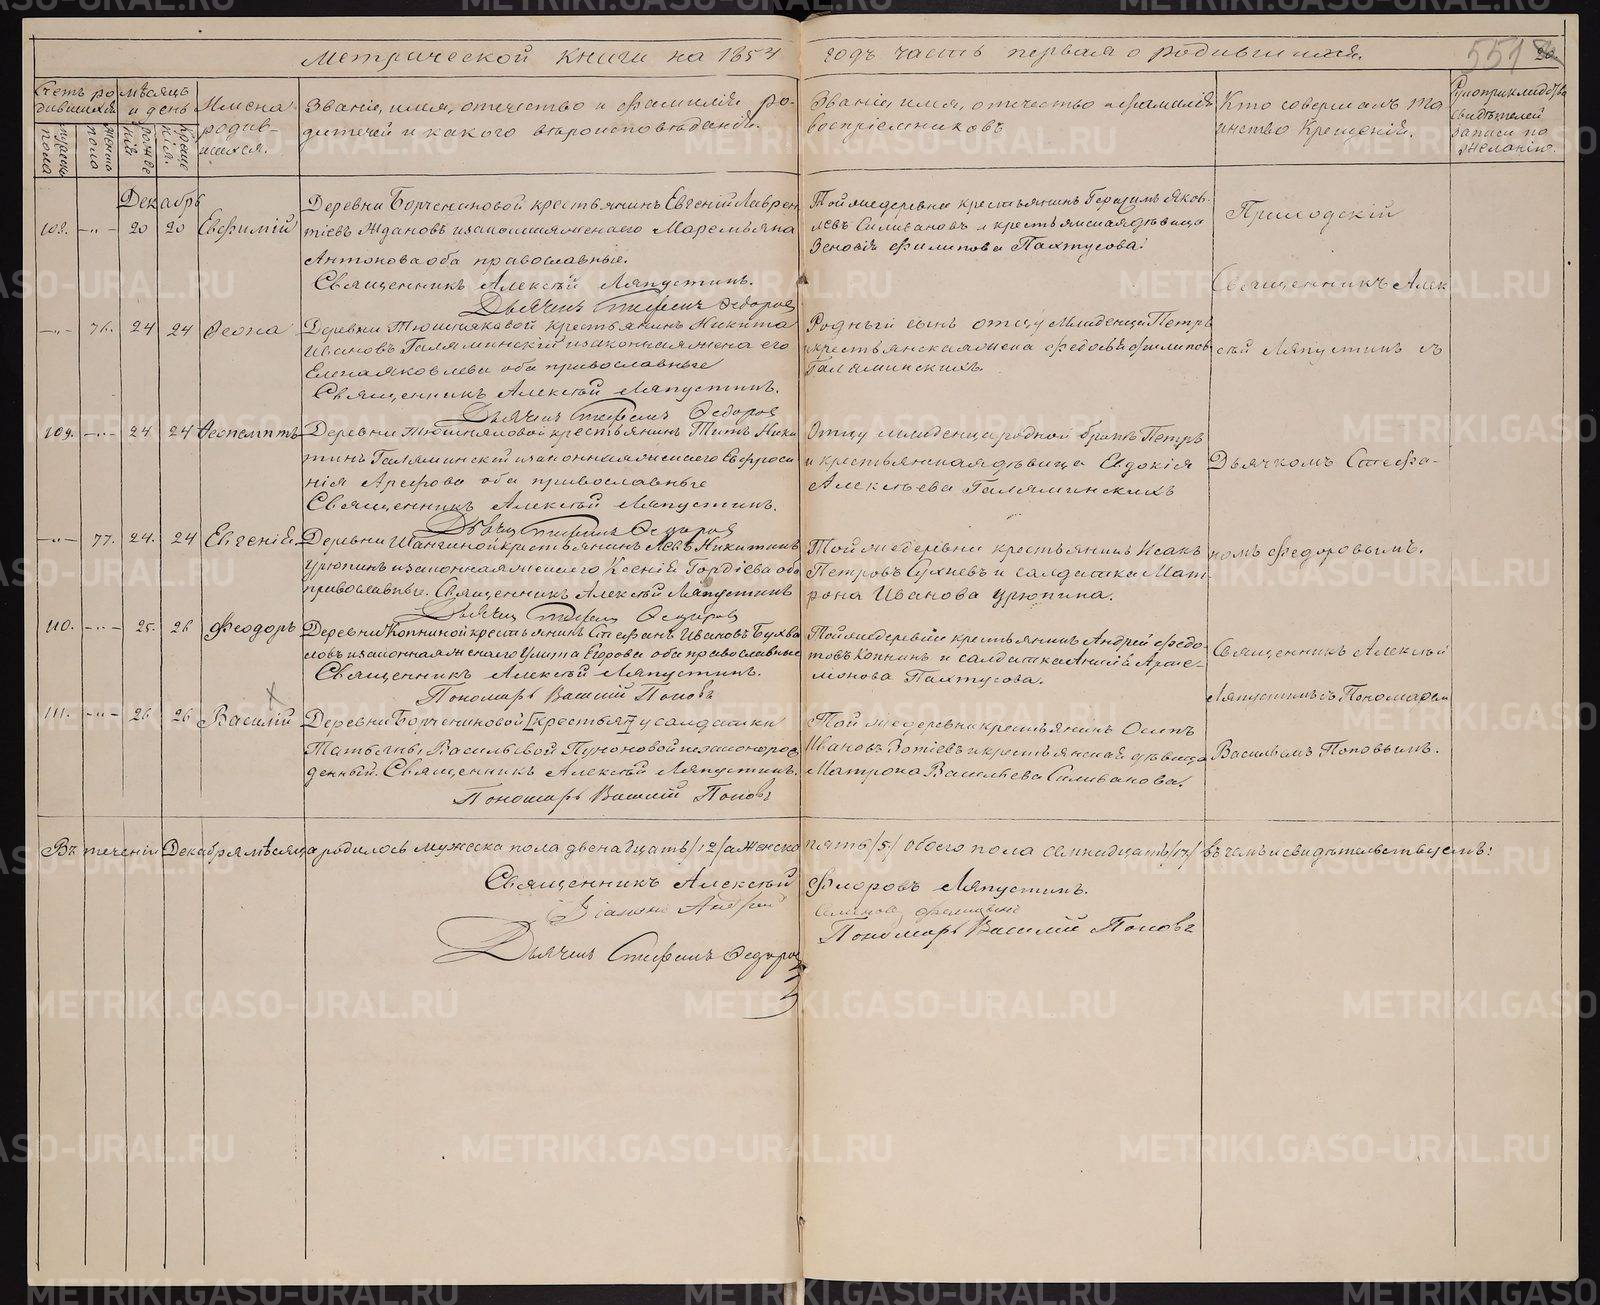 Метрической книги на 1854 годъ часть первая о родившихся.
551
Счетъ родившихся
мѣсяцъ и день
Имена родившихся.
Званіе, имя, отечество и фамилія родителей и какого вѣроисповѣданія.
Званіе, имя, отечество и фамилія воспріемниковъ
Кто совершалъ таинство Крещенія.
Рукоприкладство свидѣтелей записи по желанію.
мужеска пола
женска пола
рожденія
крещенія.
Декабрь
108. -"- 20 20 Евфимій
Деревни Борчениновой крестьянинъ Евгеній Лаврен
тіевъ Ждановъ и законная жена его Маремьяна
Антонова оба православные.
Священникъ Алексѣй Ляпустинъ.
Дьячекъ Стефанъ Ѳедоровъ
Той же деревни крестьянинъ Герасимъ Яков-
левъ Силивановъ и крестьянская дѣвица
Зеновія Филипова Пахтусова.
Приходскій
Священникъ Алек
-"- 76. 24 24 Ѳеона
Деревни Тюшняковой крестьянинъ Никита
Ивановъ Галяминскій и законная жена его
Елена Яковлева оба православные
Священникъ Алексѣй Ляпустинъ.
Дьячекъ Стефанъ Ѳедоровъ
Родный сынъ отцу младенца Петръ
и крестьянская жена Федосья Филипов
Галяминскихъ
сѣй Ляпустинъ съ
109. -"- 24 24 Ѳеопемптъ
Деревни Тюшняковой крестьянинъ Титъ Ники
тинъ Галяминскій и законная жена его Евфроси
нія Арефова оба православные
Священникъ Алексѣй Ляпустинъ.
Дьячекъ Стефанъ Ѳедоровъ
Отцу младенца родной братъ Петръ
и крестьянская дѣвица Евдокія
Алексѣева Галяминскихъ
Дьячкомъ Стефа-
-"- 77. 24. 24 Евгенія
Деревни Шангиной крестьянинъ Левъ Никитинъ
Урюпинъ и законная жена его Ксенія Гордіева оба
православные. Священникъ Алексѣй Ляпустинъ
Дьячекъ Стефанъ Ѳедоровъ
Той же деревни крестьянинъ Исакъ
Петровъ Сухневъ и салдатка Мат-
рона Иванова Урюпина.
номъ Федоровымъ.
110. -"- 25. 26 Феодоръ
Деревни Копниной крестьянинъ Стефанъ Ивановъ Бухва
ловъ и законная жена его Улита Егорова оба православные
Священникъ Алексѣй Ляпустинъ.
Пономарь Василій Поповъ
Той же деревни крестьянинъ Андрей Федо-
товъ Копнинъ и салдатка Анисія Арте-
монова Пахтусова.
Священникъ Алексѣй
111. -"- 26 26 Василій
Деревни Борчениновой [крестьян] у салдатки
Татьяны Васильевой Пуноновой незаконорож
денный. Священникъ Алексѣй Ляпустинъ.
Пономарь Василій Поповъ
Той же деревни крестьянинъ Осипъ
Ивановъ Зотіевъ и крестьянская дѣвица
Матрона Васильева Силиванова.
Ляпустинъ съ Пономаремъ
Васильемъ Поповымъ.
Въ теченіи Декабря мѣсяца родилось мужеска пола двенадцать /12/ а женска пять /5/ обоего пола семнадцать /17/ въ чемъ и свидѣтельствуемъ:
Священникъ Алексѣй Флоровъ Ляпустинъ.
Діаконъ Андрей
Пономарь Василій Поповъ
Дьячекъ Стефанъ Ѳедоровъ
METRIKI.GASO-URAL.RU